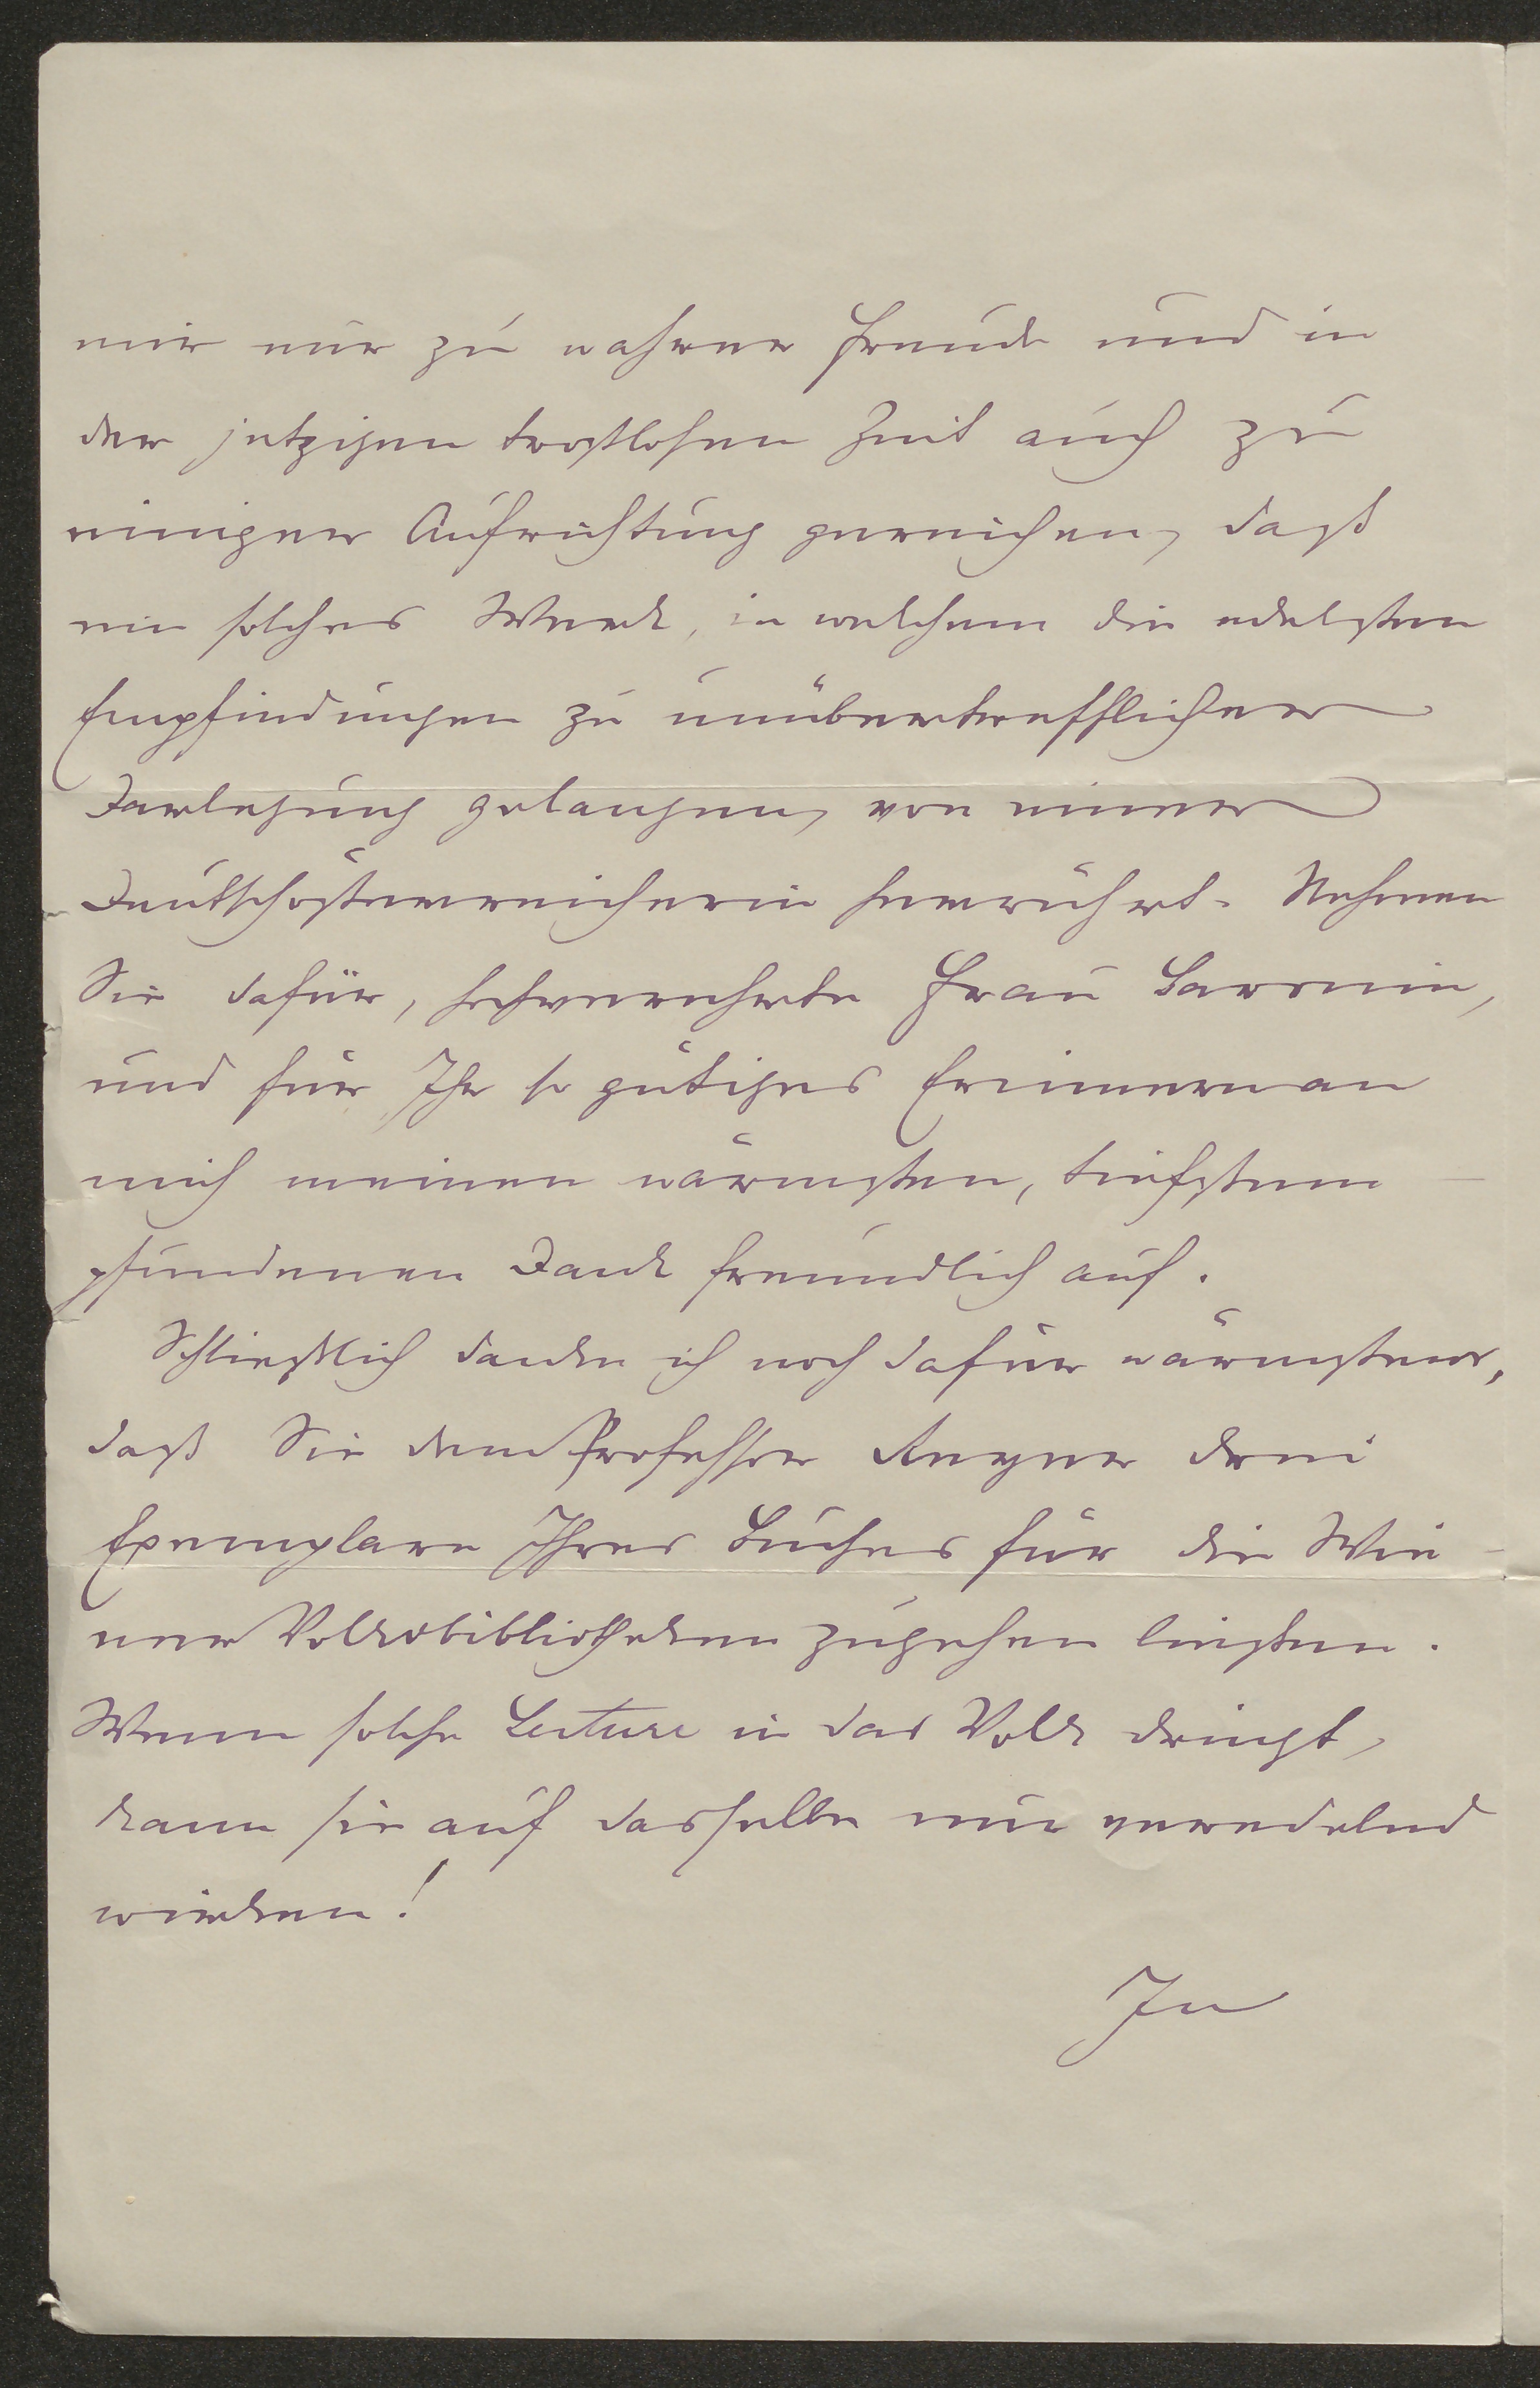 mir nur zu wahrer Freude und in
der jetzigen trostlosen Zeit auch zu
einiger Aufrichtung gereichen, daß
ein solches Werk, in welchem die edelsten
Empfindungen zu unübertrefflicher
Darlegung gelangen, von einer
Deutschösterreicherin herrührt. Nehmen
Sie dafür, hochverehrte Frau Baronin,
und für Ihr so gütiges Erinnern an
mich meinen wärmsten, tiefstem-
pfundenen Dank freundlich auf.
Schließlich danke ich noch dafür wärmstens,
daß Sie dem Professor Reyer drei
Exemplare Ihres Buches für die Wie-
ner Volksbibliotheken zugehen ließen.
Wenn solche Lecture in das Volk dringt,
kann sie auf dasselbe nur veredelnd
wirken!
In